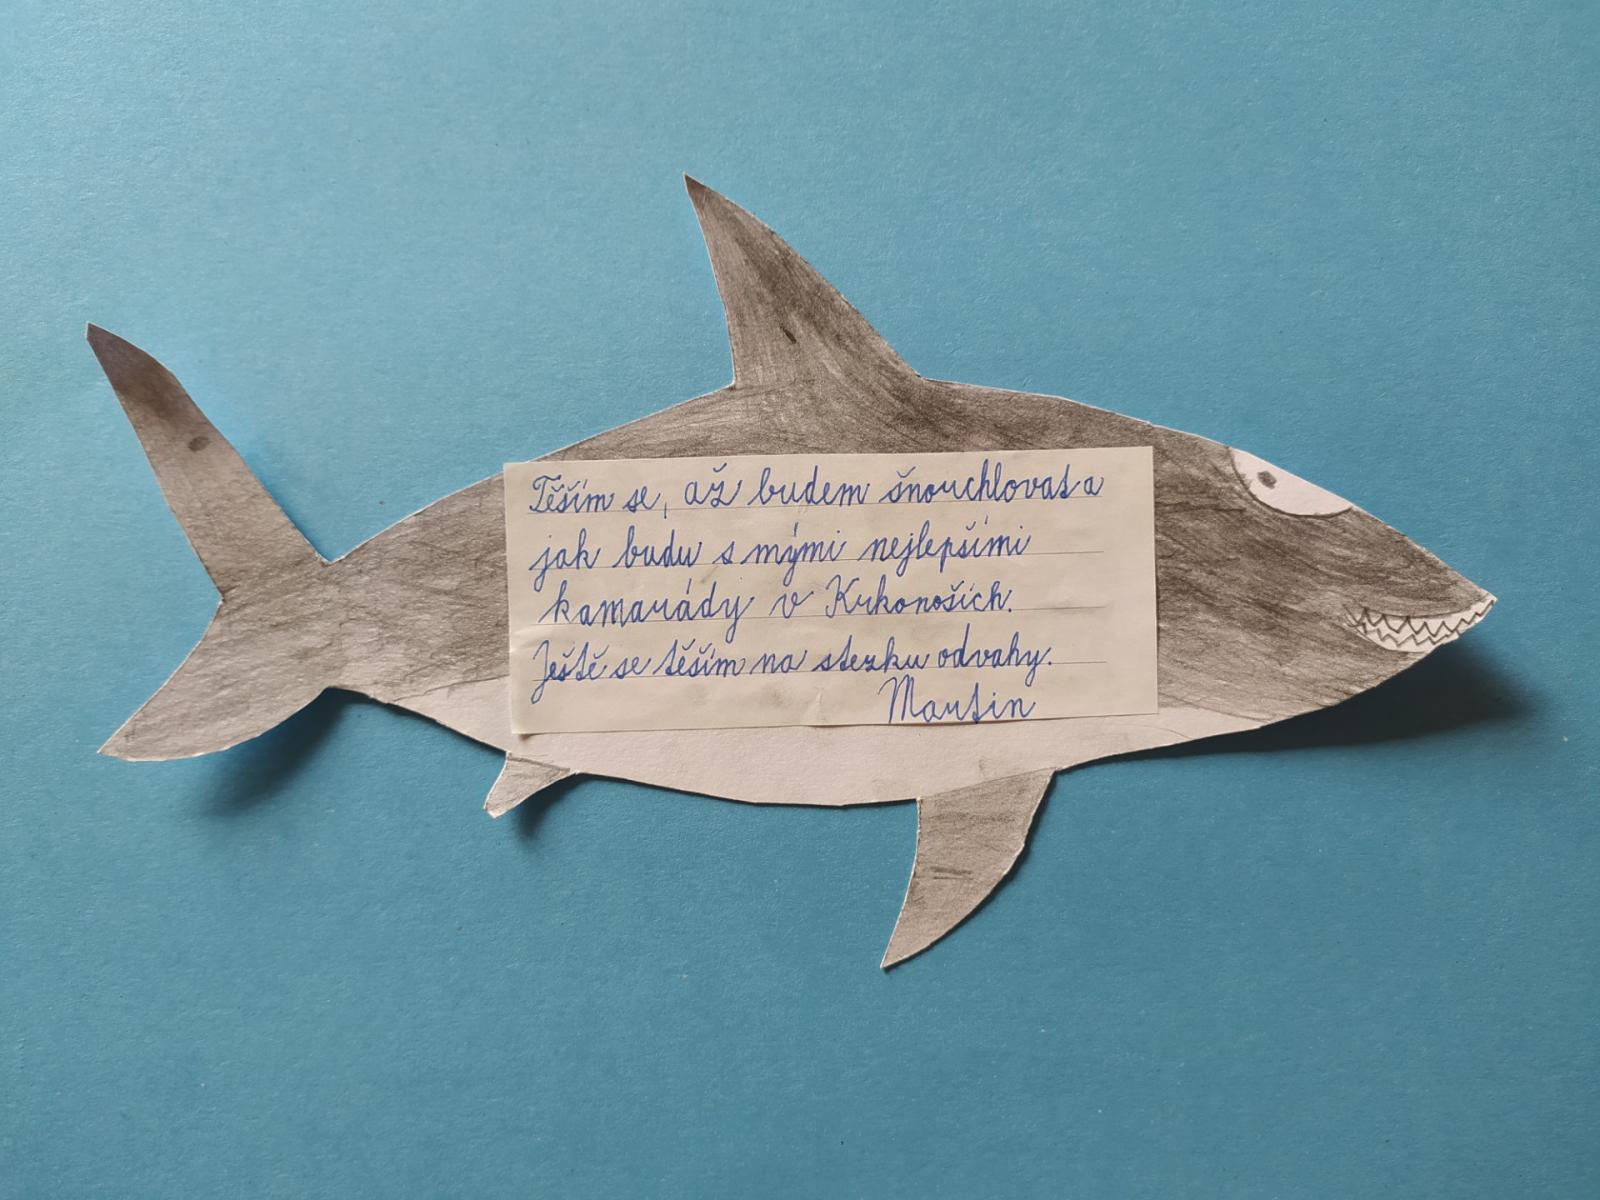 Těším se, až budem šnouchlovat a
jak budu s mými nejlepšími
kamarády v Krkonoších.
Ještě se těším na stezku odvahy.
Martin